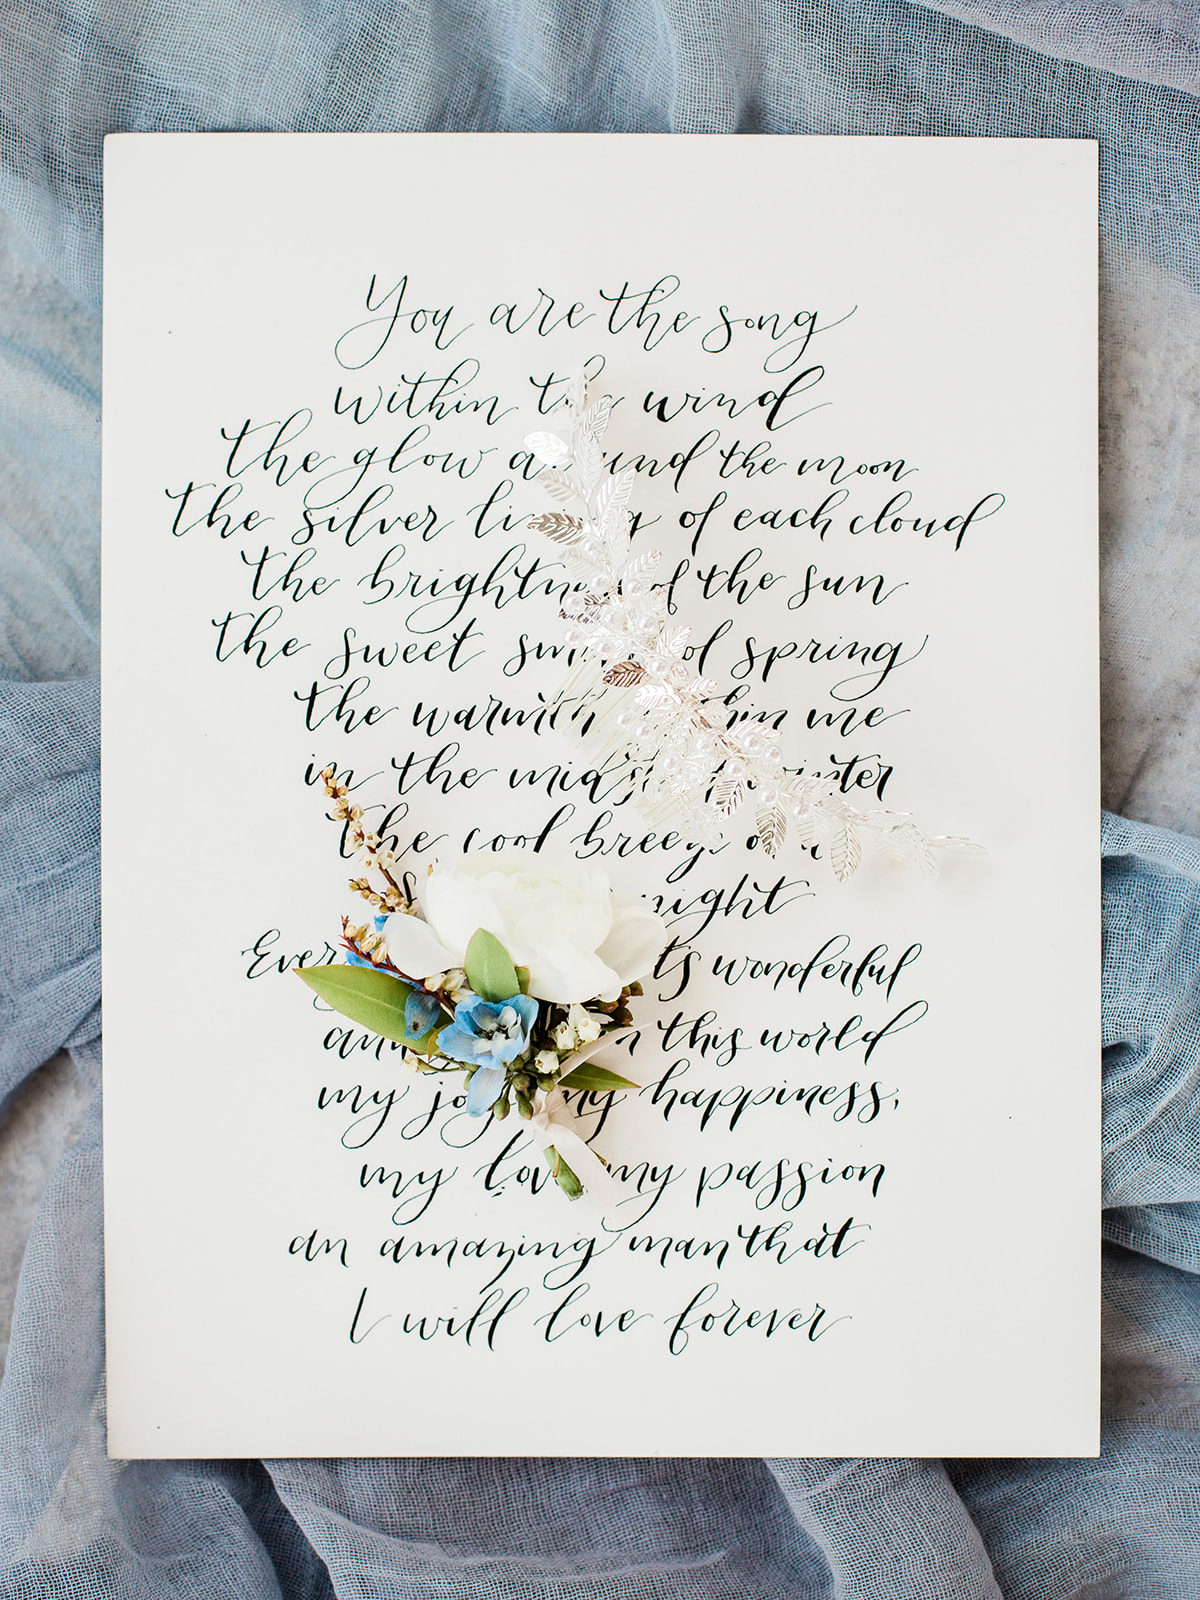 You are the song
within the wind
the glow around the moon
the silver lining of each cloud
the brightness of the sun
the sweet smell of spring
the warmth within me
in the midst of winter
the cool breeze on a
night
wonderful
and in this world
my joy, my happiness,
my love, my passion
an amazing man that
I will love forever